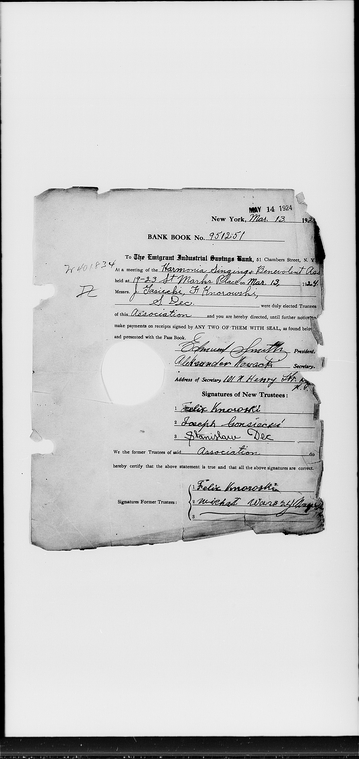 MAY 14 1924
New York, Mar. 13 192
BANK BOOK No. 951251
To The Emigrant Industrial Savings Bank, 51 Chambers Street, N. Y.
W401834
At a meeting of the Harmonia Singing Benevolent Ass
held at 19-23 St Marks Place Mar. 13, 1924
Messrs. J. F. Knorowski,
S Dec. were duly elected Trustees
of this Association and you are hereby directed, until further notice
make payments on receipts signed by ANY TWO OF THEM WITH SEAL, as found below
and presented with the Pass Book.
Edmund Smith President.
Aleksander Nowacki Secretary.
Address of Secretary 101 Henry Str
N.Y.
Signatures of New Trustees:
1 Felix Knowski
2 Joseph
3 Stanislaw Dec
We the former Trustees of said Association do
hereby certify that the above statement is true and that all the above signatures are correct.
Signatures Former Trustees:
1 Felix Knorowski
2 Michał
3